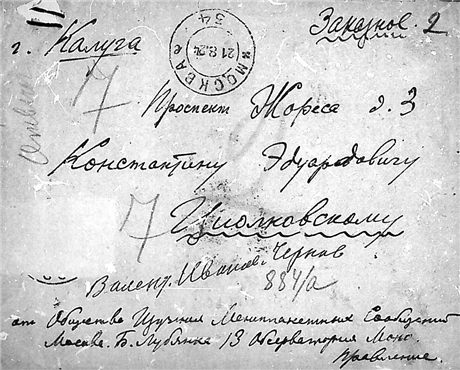 Заказное. 2
г. Калуга
МОСКВА
21.8.24
34
Проспект Жореса д. 3
Константину Эдуардовичу
Циолковскому
Валент. Иванов. Чернов
884/а
от Общества Изучения Межпланетных Сообщений
Москва. Б. Лубянка 13 Обсерватория
Правление.